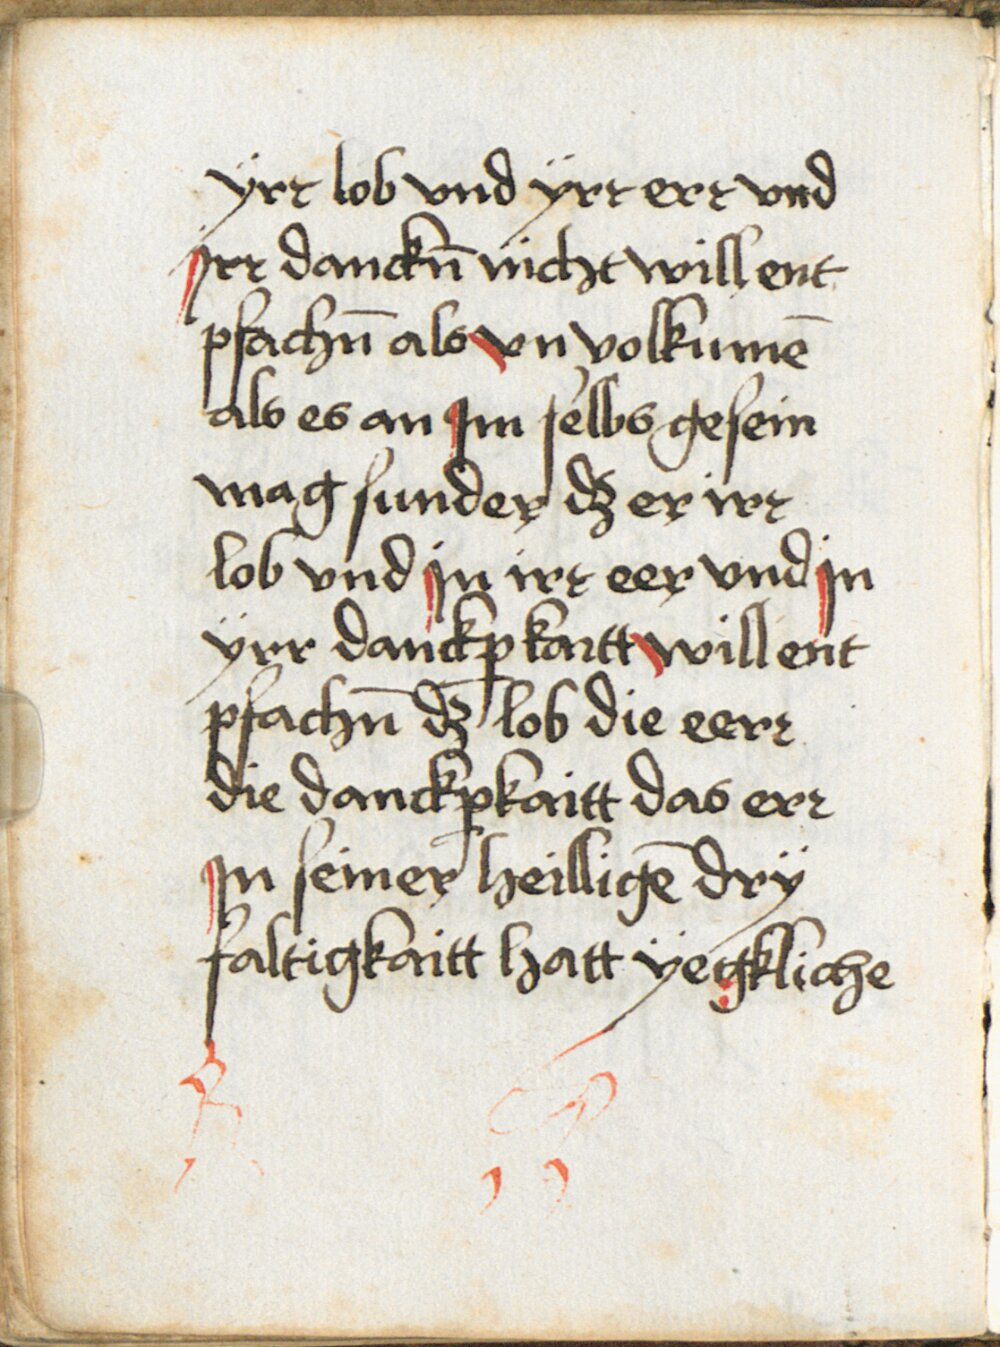 ÿrr lob vnd ÿrr err vnd
jrr danckn̄ nicht will ent
pfachn̄ als vn volkumē
als es an jm selbs gesein
mag sunder dʒ er irr
lob vnd jn irr eer vnd jn
ÿrr danckp kaitt will ent
pfachn̄ dʒ lob die eerr
die danckpkaitt das err
jn seiner heilligē drÿ
faltigkaitt hatt ÿegkliche